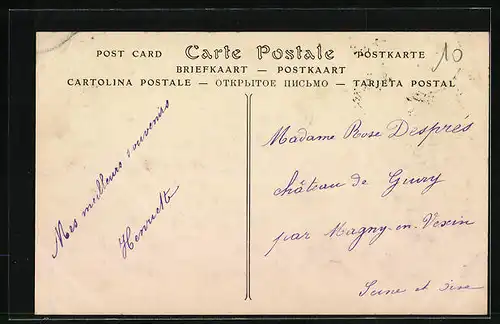 10
POST CARD Carte Postale POSTKARTE
BRIEFKAART — POSTKAART
CARTOLINA POSTALE — ОТКРЫТОЕ ПИСЬМО — TARJETA POSTAL
Mes meilleurs souvenirs
Henriette
Madame Rose Després
château de Guiry
par Magny-en-Vexin
Seine et Oise